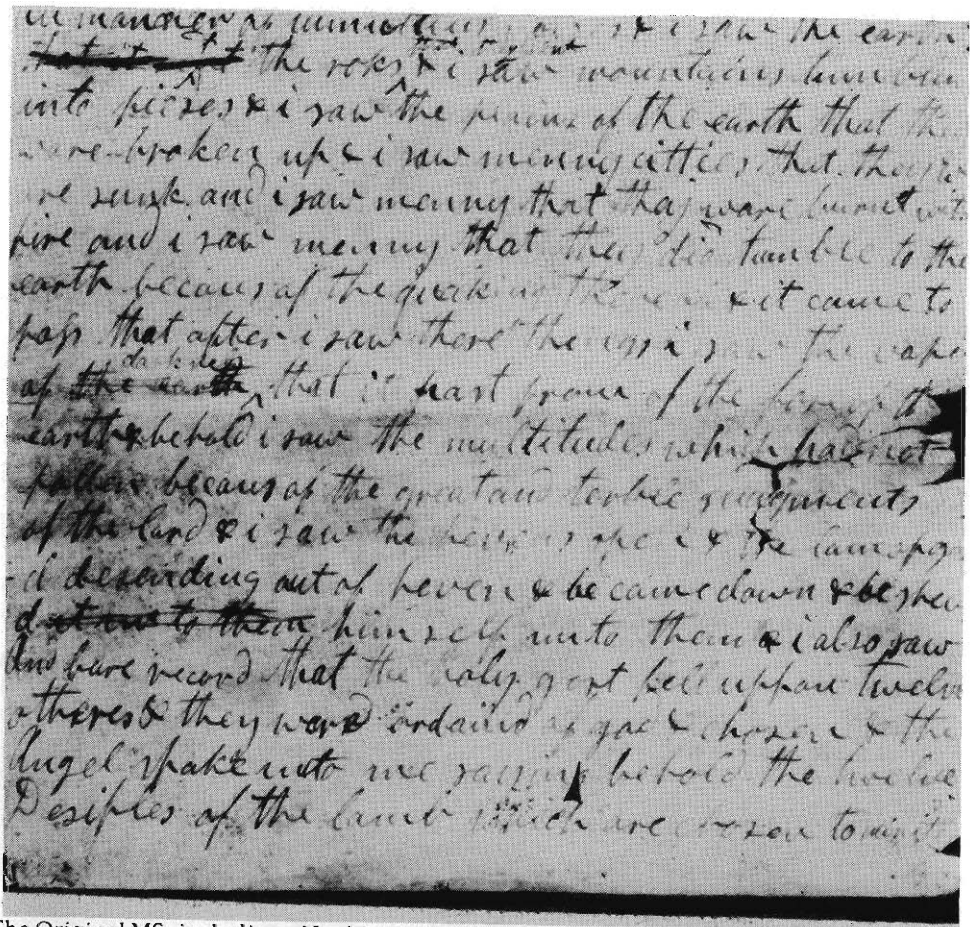 in manner of tumultious & i saw the earth
that it the roks that it rent & i saw mountains tumbling
into piezes & i saw the plains of the earth that the
ware broken up & i saw menny citties that thay w
ere sunk and i saw menny that thay ware burnt with
fire and i saw menny that they did tumble to the
earth becaus of the quaking thereof & it came to
pass that after i saw these things i saw the vapor
of the earth darkness that it past from of the face of the
earth & behold i saw the multitudes which had not
fallen becaus of the great and terble judgments
of the lord & i saw the hevens open & the lam of go
d desending out of heven & he came down & he shew
d it unto them him self unto them & i also saw
And bare record that the holy gost fell uppon twelve
otheres & they were ordaind of god & chosen & the
Angel spake unto me saying behold the twelve
Desiples of the lamb which are chosen to minite
The Original MS